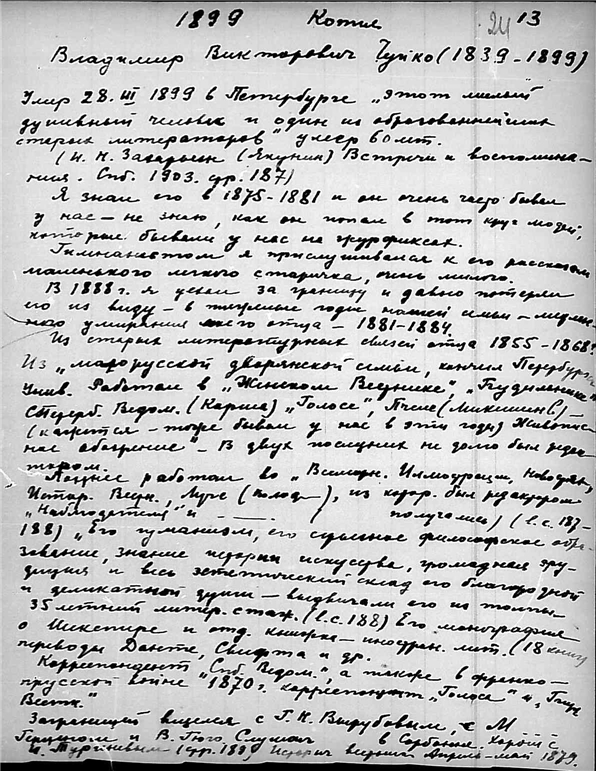 1899 Копия 24 13
Владимир Викторович Чуйко (1839-1899)
Умер 28.III 1899 в Петербурге „этот милый
душевный человек и один из образованнейших
старых литераторов" умер 60 лет.
(И. Н. Захарьин (Якунин) Встречи и воспомина-
ния. Спб. 1903. стр. 187)
Я знал его в 1875-1881 и он очень часто бывал
у нас — не знаю, как он попал в тот круг людей,
которые бывали у нас на журфиксах.
Гимназистом я прислушивался к его рассказам
маленького легкого старичка, очень милого.
В 1888 г. я уехал за границу и давно потерял
его из виду — в последние годы нашей семьи — медлен-
ного умирания моего отца — 1881-1884.
Из старых литературных связей отца 1855-1868?
Из „малорусской дворянской семьи, кончил Петербургск
Унив. Работал в „Женском Вестнике", „Будильнике"
СПетерб. Ведом. (Корша) „Голосе", Пчеле (Микешин) —
(кажется — тоже бывал у нас в эти годы) Живопис
ное обозрение" — В двух последних не долго был редак
тором.
Позднее работал во „Всемирн. Иллюстрации, Новостях,
Истор. Вестн., Луче, из котор. был редактором
„Наблюдателя" и (l.c. 187-
188) „Его гуманизм, его философское обра-
зование, знание истории искусства, громадная эру-
диция и весь эстетический склад его благородной
и деликатной души — выдвигали его из толпы —
35 летний литер. стаж. (l.c. 188) Его монография
о Шекспире и отд. книжка — иностран. лит. (18 книг
переводы Данте, Свифта и др.
Корреспондент „Спб. Ведом.", а также в франко-
прусской войне "1870 г. корреспондент „Голоса" и
Вестн."
Заграницей виделся с Г. Н. Вырубовым, с М
Герцегом и В. Гюго. Слушал в Сорбонне. Хорош с
И. Тургеневым (стр. 189) Историч вестник Апрель-май 1879.